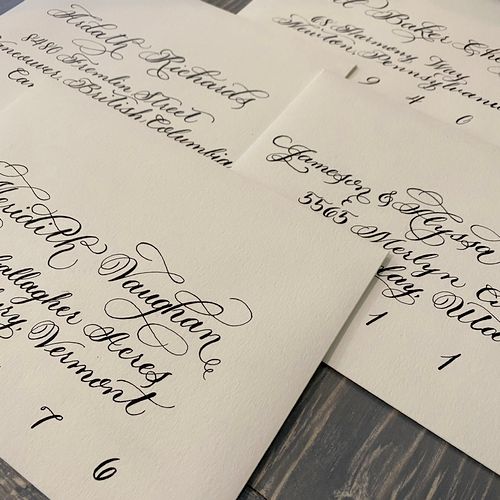 Hsdath Richards
8480 Fremlin Street
Vancouver, British Columbia
Can
Baker
68 Harmony Way
Newton, Pennsylvania
9 4 0
Jameson & Alyssa
5565 Merlyn
lay, Utah
1 1
Meridith Vaughan
Gallagher Acres
ury, Vermont
7 6